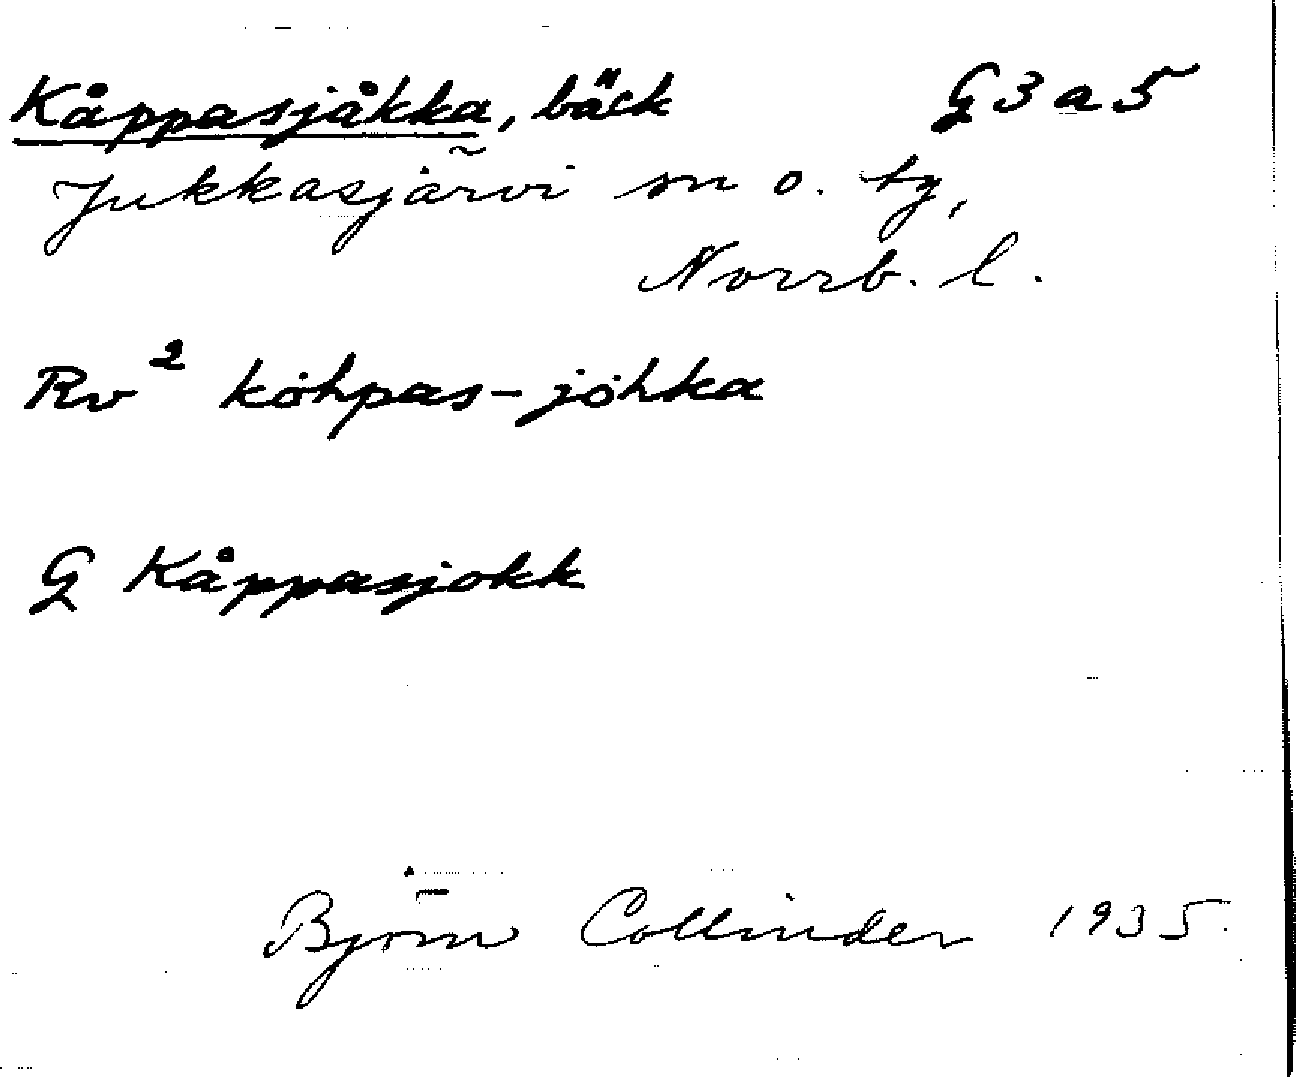 Kåppasjåkka, bäck G3a5
Jukkasjärvi sn o. tg,
Norrb. l.
Rv² kȯhpas-jȯhka
G Kåppasjokk
Björn Collinder 1935.